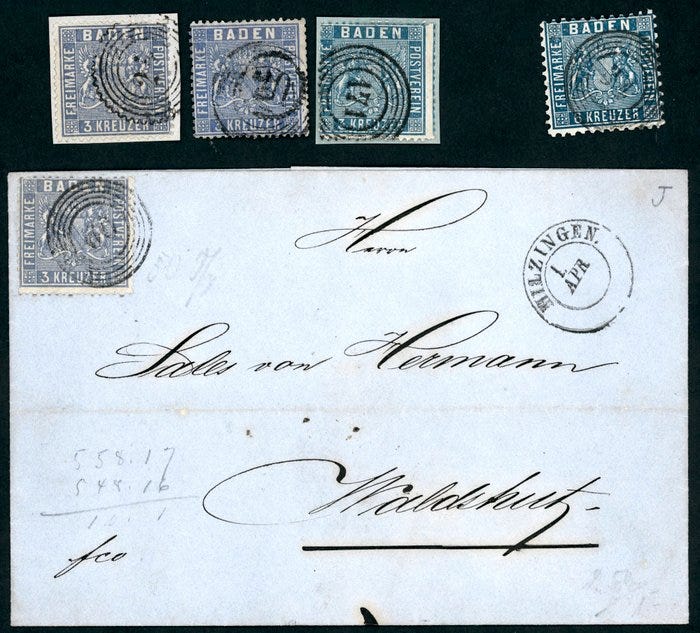 BADEN
FREIMARKE
POSTVEREIN
3 KREUZER
BADEN
FREIMARKE
POSTVEREIN
3 KREUZER
BADEN
FREIMARKE
POSTVEREIN
3 KREUZER
BADEN
FREIMARKE
6 KREUZER
BADEN
FREIMARKE
POSTVEREIN
3 KREUZER
J
HILZINGEN.
1.
APR
Herrn
Sales von Hermann
558.17
548.16
Waldshut
fco